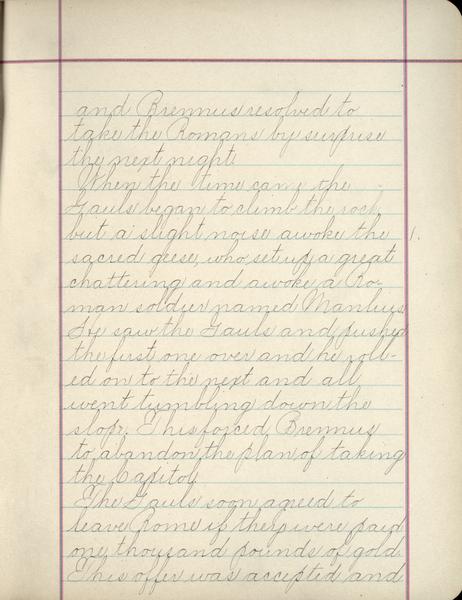 and Brennus resolved to
take the Romans by surprise
the next night.
When the time came the
Gauls began to climb the rock,
but a slight noise awoke the
1.
sacred geese, who set up a great
chattering and awoke a Ro-
man soldier named Manlius.
He saw the Gauls and pushed
the first one over and he roll-
ed on to the next and all
went tumbling down the
slope. This forced Brennus
to abandon the plan of taking
the Capitol.
The Gauls soon agreed to
leave Rome if they were paid
one thousand pounds of gold.
This offer was accepted and